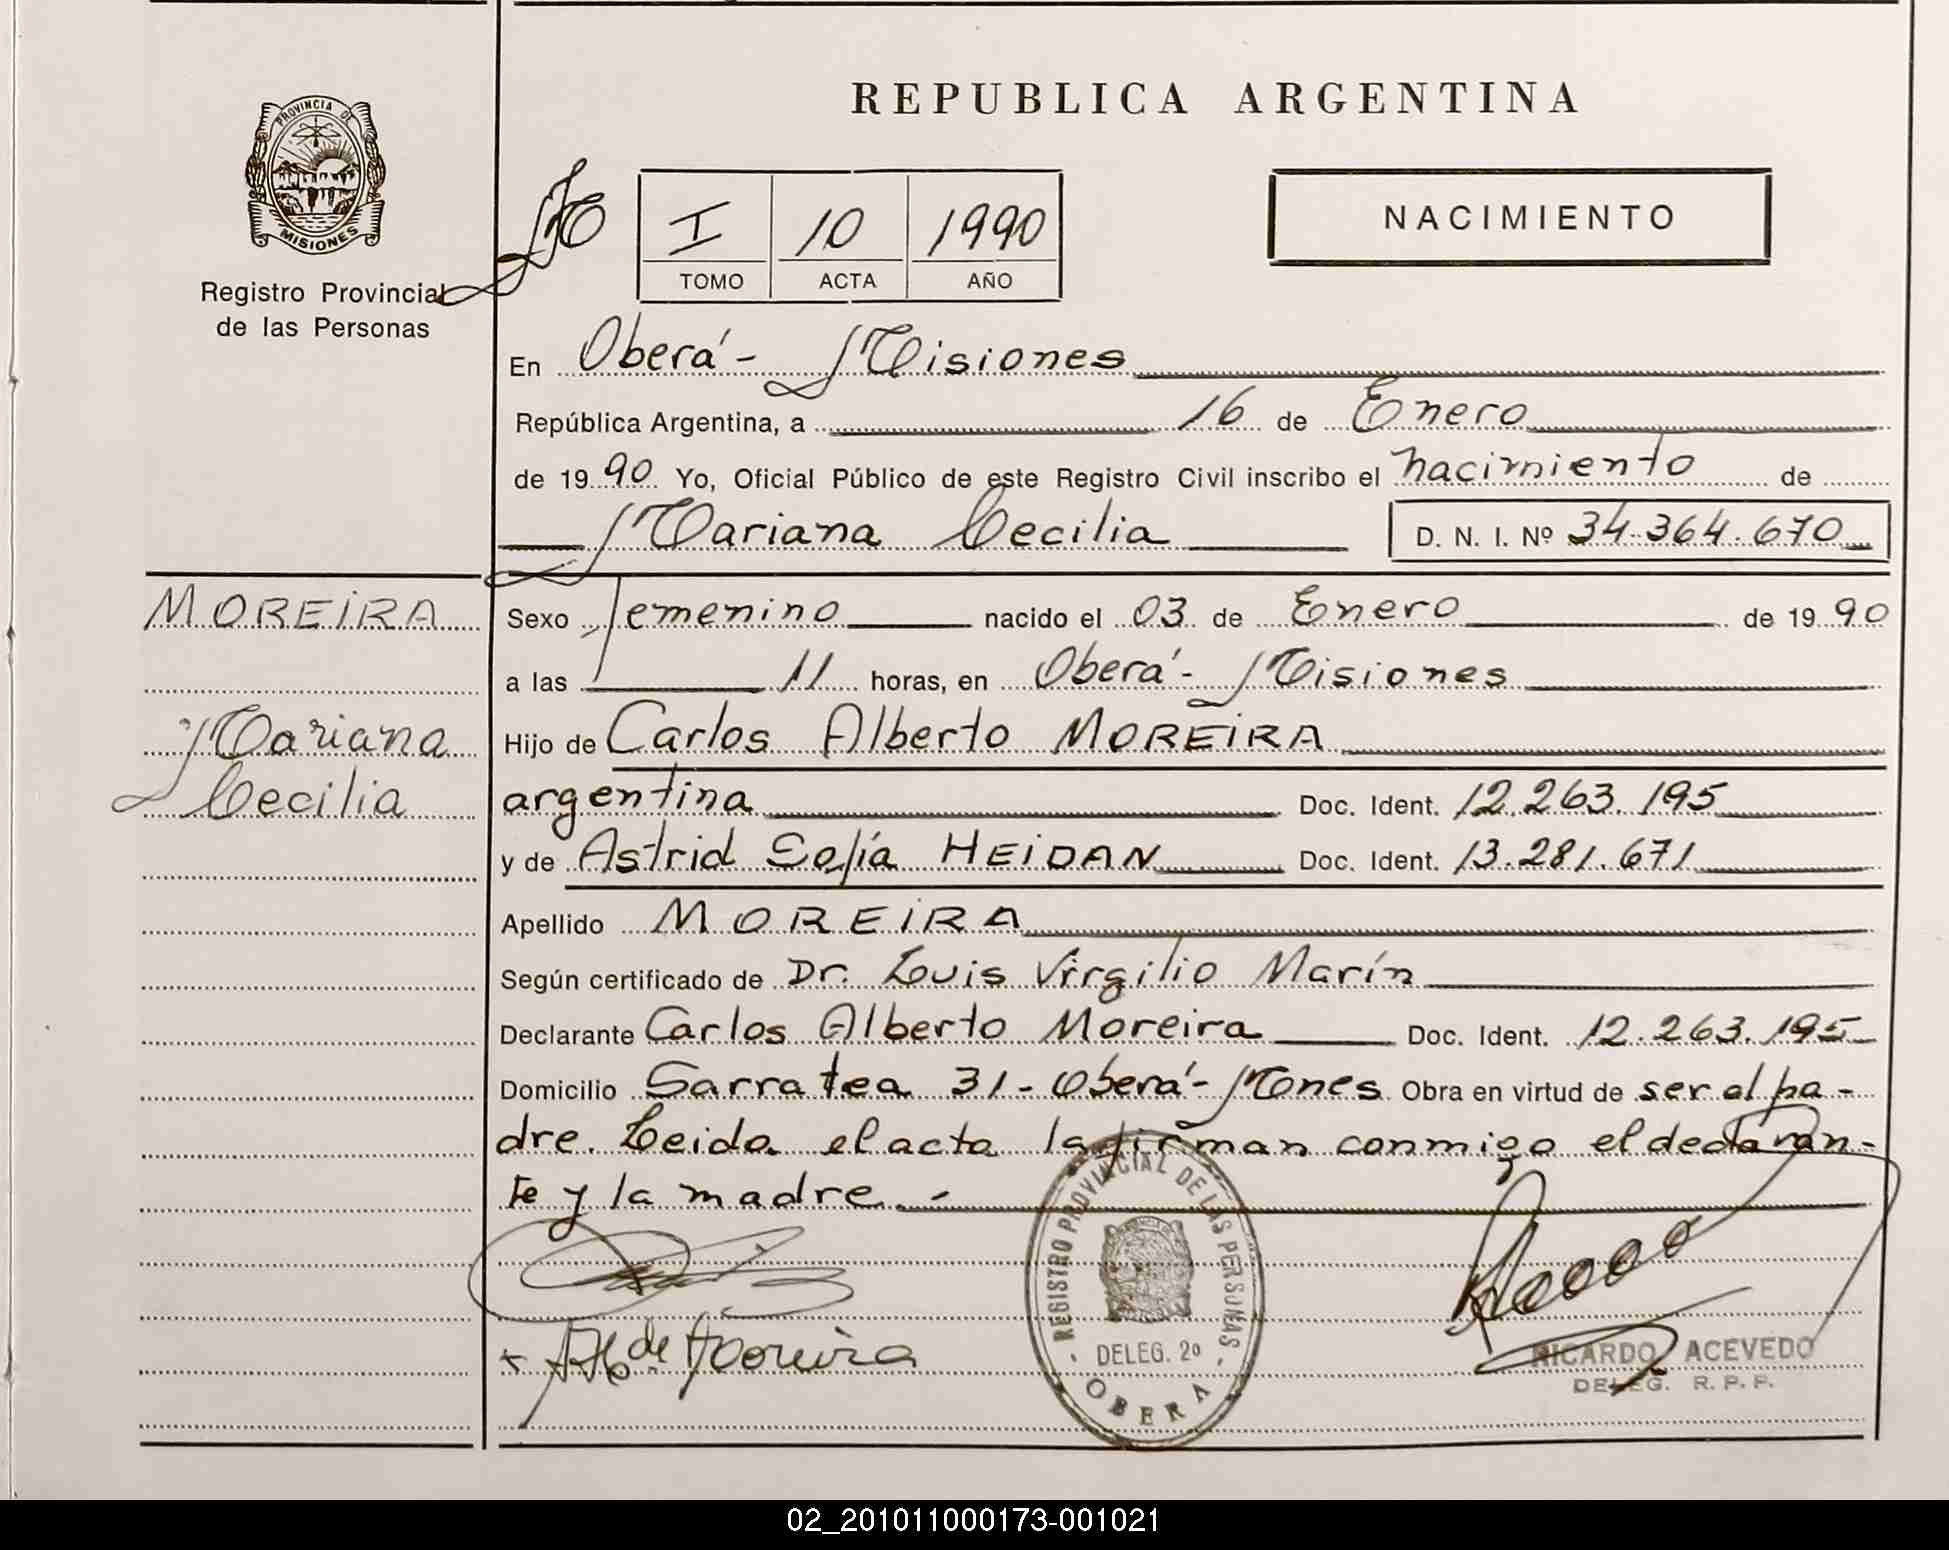 REPUBLICA ARGENTINA
PROVINCIA DE
MISIONES
Registro Provincial
de las Personas
I 10 1990
TOMO ACTA AÑO
NACIMIENTO
En Oberá - Misiones
República Argentina, a 16 de Enero
de 1990 Yo, Oficial Público de este Registro Civil inscribo el nacimiento de
Mariana Cecilia D. N. I. Nº 34.364.670
MOREIRA
Mariana
Cecilia
Sexo femenino nacido el 03 de Enero de 1990
a las 11 horas, en Oberá - Misiones
Hijo de Carlos Alberto MOREIRA
argentina Doc. Ident. 12.263.195
y de Astrid Sofía HEIDAN Doc. Ident. 13.281.671
Apellido MOREIRA
Según certificado de Dr. Luis Virgilio Marín
Declarante Carlos Alberto Moreira Doc. Ident. 12.263.195
Domicilio Sarratea 31 - Oberá - Mones Obra en virtud de ser el pa-
dre. Leida el acta la firman conmigo el declaran-
te y la madre. -
REGISTRO PROVINCIAL DE LAS PERSONAS
DELEG. 2º
OBERA
de Moreira
RICARDO ACEVEDO
DELEG. R. P. P.
02_201011000173-001021